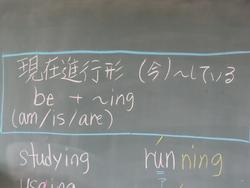 現在進行形 (今)〜している
be + 〜ing
(am/is/are)
studying running
using ?